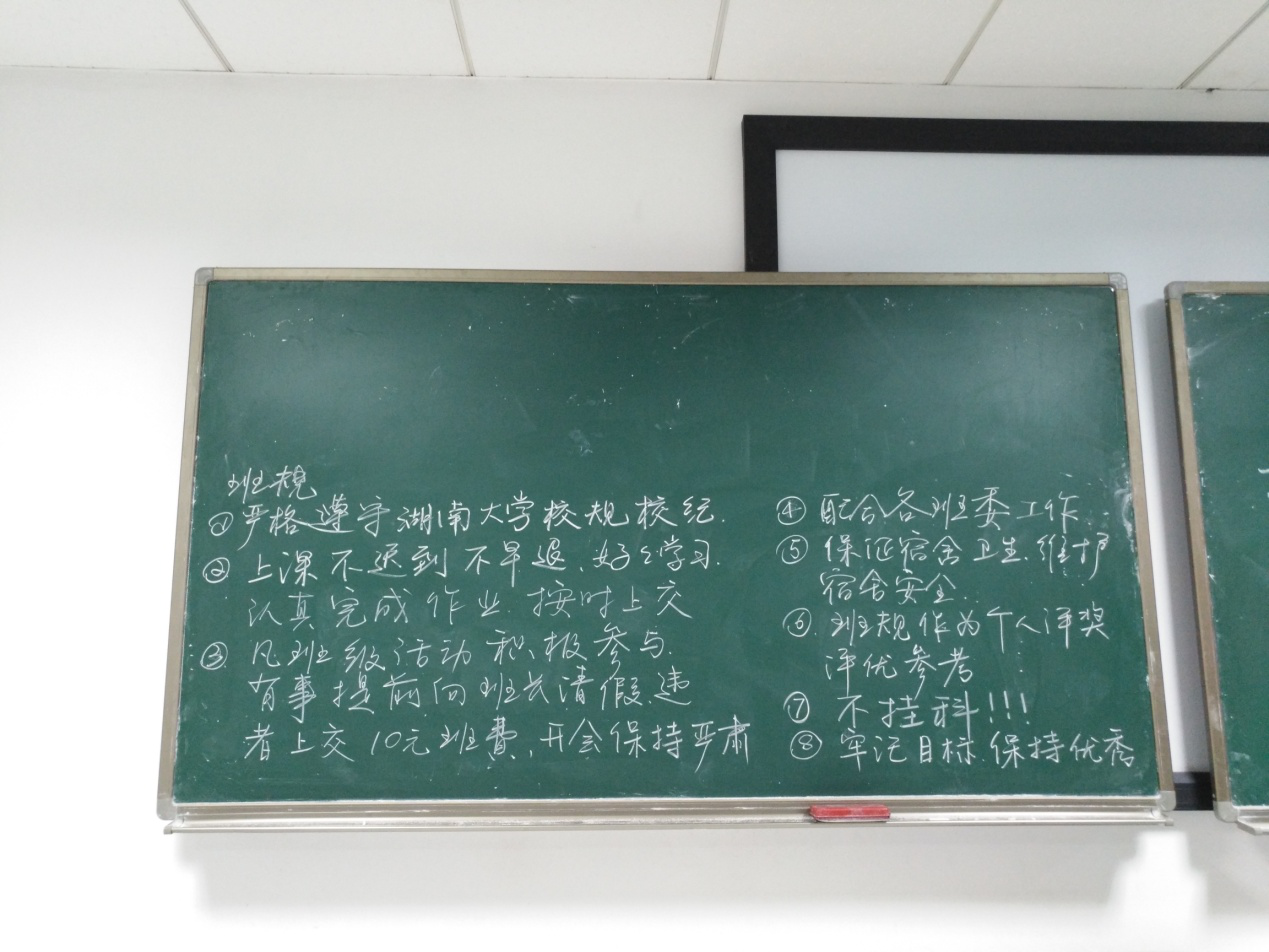 班规
① 严格遵守湖南大学校规校纪.
② 上课不迟到不早退.好好学习.
认真完成作业.按时上交
③ 凡班级活动积极参与.
有事提前向班长请假.违
者上交10元班费,开会保持严肃
④ 配合各班委工作
⑤ 保证宿舍卫生.维护
宿舍安全.
⑥ 班规作为个人评奖
评优参考
⑦ 不挂科!!!
⑧ 牢记目标.保持优秀